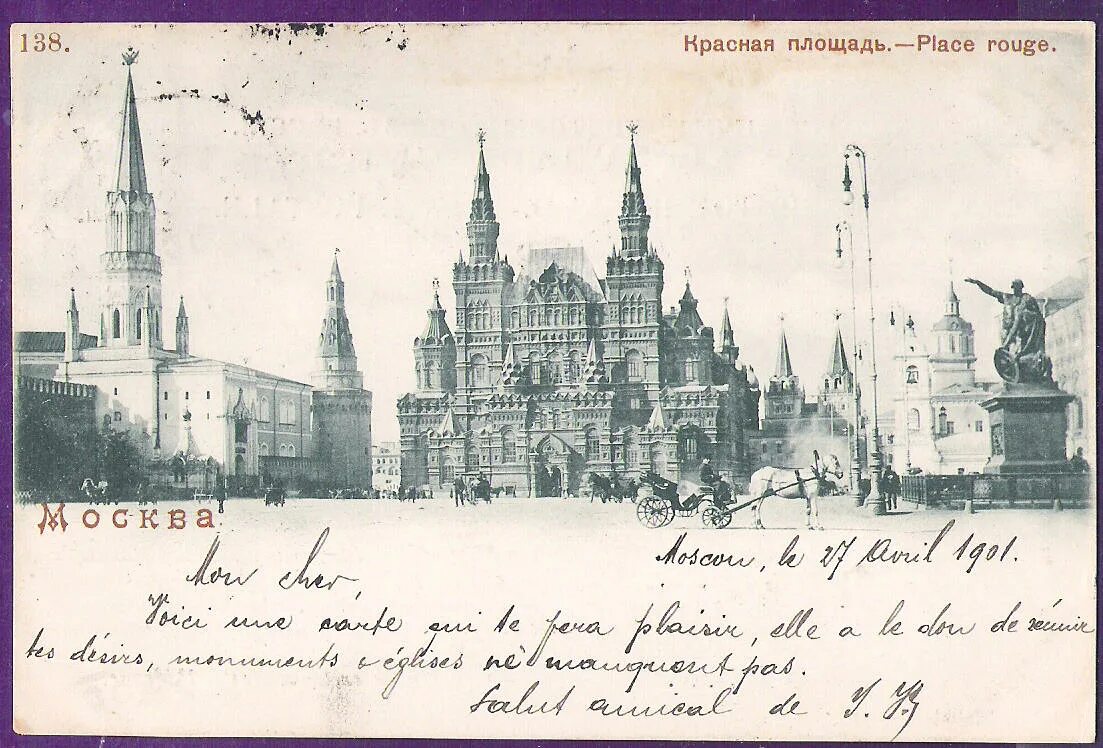 138.
Красная площадь.—Place rouge.
Москва
Moscou, le 27 Avril 1901.
Mon cher,
Voici une carte qui te fera plaisir, elle a le don de réunir
tes désirs, monuments & églises ne manquent pas.
Salut amical de